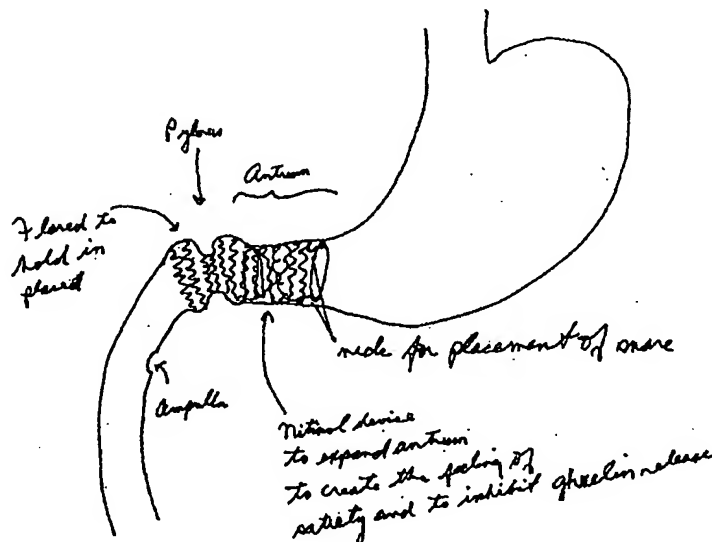 Pylorus
Antrum
Flared to
hold in
placed
ampulla
for placement of snare
Nitinol device
to expand antrum
to create the feeling of
satiety and to inhibit ghrelin release